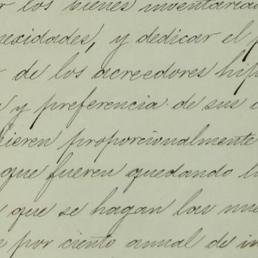 los bienes inventaria
nesidades, y dedicar el
de los acreedores hip
y preferencia de sus
ieren proporcionalmente
que fueren quedando l
que se hagan las nue
por ciento anual de in